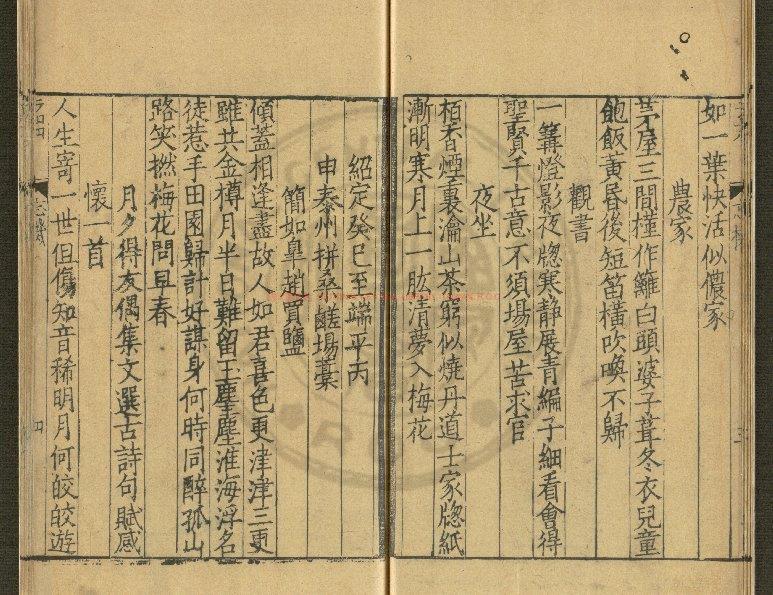 如一葉快活似儂家
農家
茅屋三間槿作籬白頭婆子葺冬衣兒童
飽飯黃昬後短笛橫吹喚不歸
觀書
一篝燈影夜牕寒静展青編子細看會得
聖賢千古意不須場屋苦求官
夜坐
栢香煙裏瀹山茶窮似燒丹道士家牕紙
漸明寒月上一肱清夢入梅花
紹定癸巳至端平丙
申泰州拼桑鹺場藁
簡如臯趙買鹽
傾蓋相逢盡故人如君喜色更津津三更
雖共金樽月半日難留玉麈塵淮海浮名
徒惹手田園歸計好謀身何時同醉孤山
路笑撚梅花問早春
月夕得友偶集文選古詩句賦感
懷一首
人生寄一世但傷知音稀明月何皎皎遊